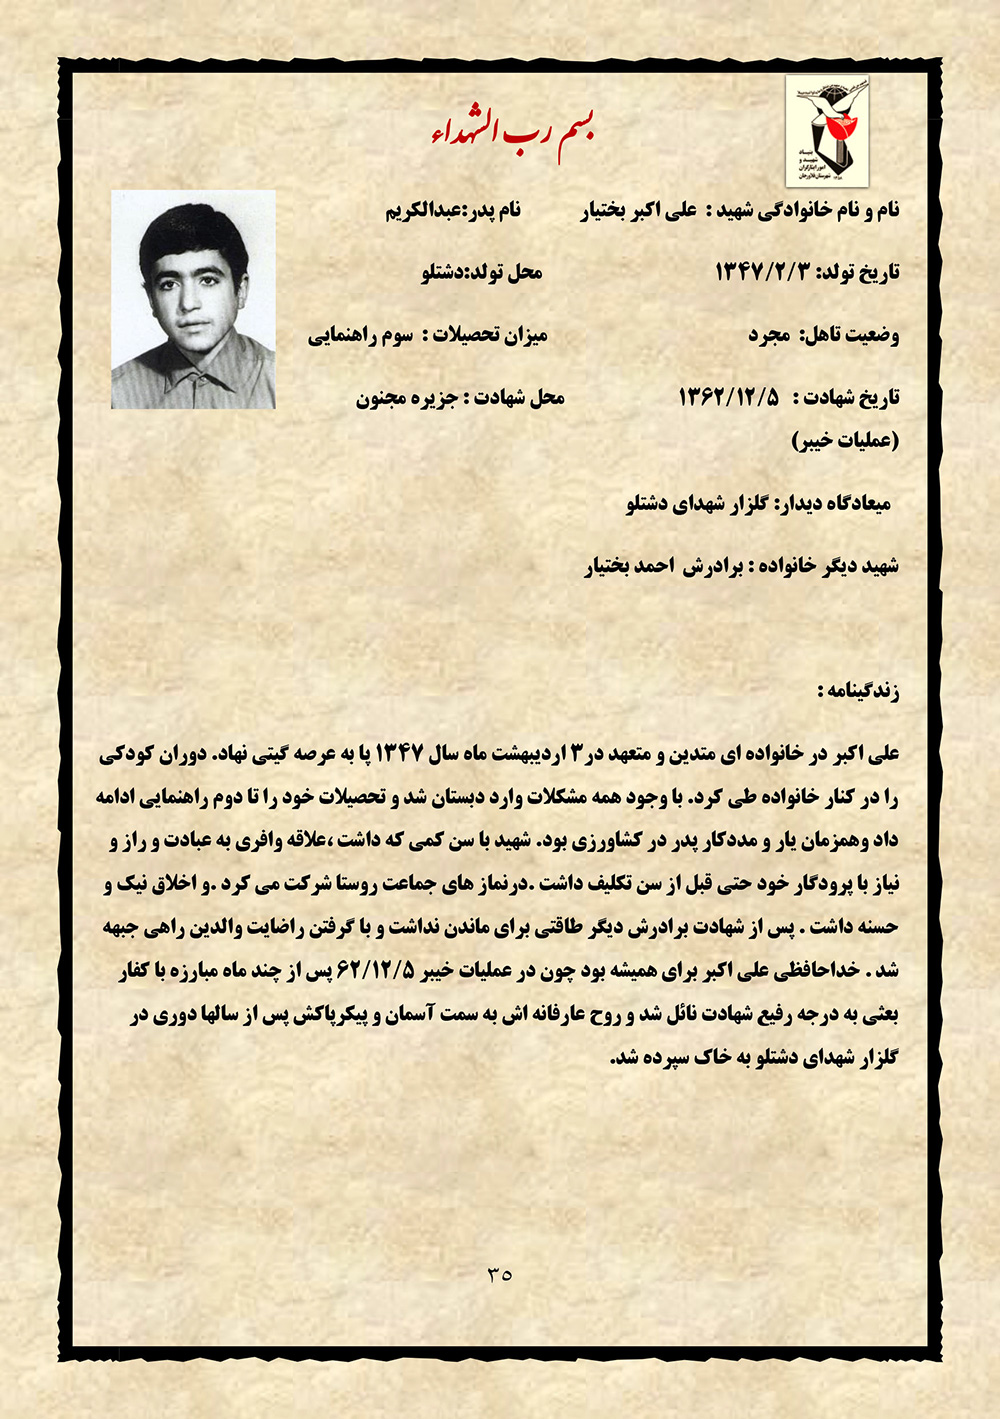 بسم رب الشهداء
بنیاد
شهید و
امور ایثارگران
شهرستان فلاورجان
نام و نام خانوادگی شهید : علی اکبر بختیار نام پدر:عبدالکریم
تاریخ تولد: ۱۳۴۷/۲/۳ محل تولد:دشتلو
وضعیت تاهل: مجرد میزان تحصیلات : سوم راهنمایی
تاریخ شهادت : ۱۳۶۲/۱۲/۵ محل شهادت : جزیره مجنون
(عملیات خیبر)
میعادگاه دیدار: گلزار شهدای دشتلو
شهید دیگر خانواده : برادرش احمد بختیار
زندگینامه :
علی اکبر در خانواده ای متدین و متعهد در۳ اردیبهشت ماه سال ۱۳۴۷ پا به عرصه گیتی نهاد. دوران کودکی
را در کنار خانواده طی کرد. با وجود همه مشکلات وارد دبستان شد و تحصیلات خود را تا دوم راهنمایی ادامه
داد وهمزمان یار و مددکار پدر در کشاورزی بود. شهید با سن کمی که داشت ،علاقه وافری به عبادت و راز و
نیاز با پرودگار خود حتی قبل از سن تکلیف داشت .درنماز های جماعت روستا شرکت می کرد .و اخلاق نیک و
حسنه داشت . پس از شهادت برادرش دیگر طاقتی برای ماندن نداشت و با گرفتن راضایت والدین راهی جبهه
شد . خداحافظی علی اکبر برای همیشه بود چون در عملیات خیبر ۶۲/۱۲/۵ پس از چند ماه مبارزه با کفار
بعثی به درجه رفیع شهادت نائل شد و روح عارفانه اش به سمت آسمان و پیکرپاکش پس از سالها دوری در
گلزار شهدای دشتلو به خاک سپرده شد.
۳۵